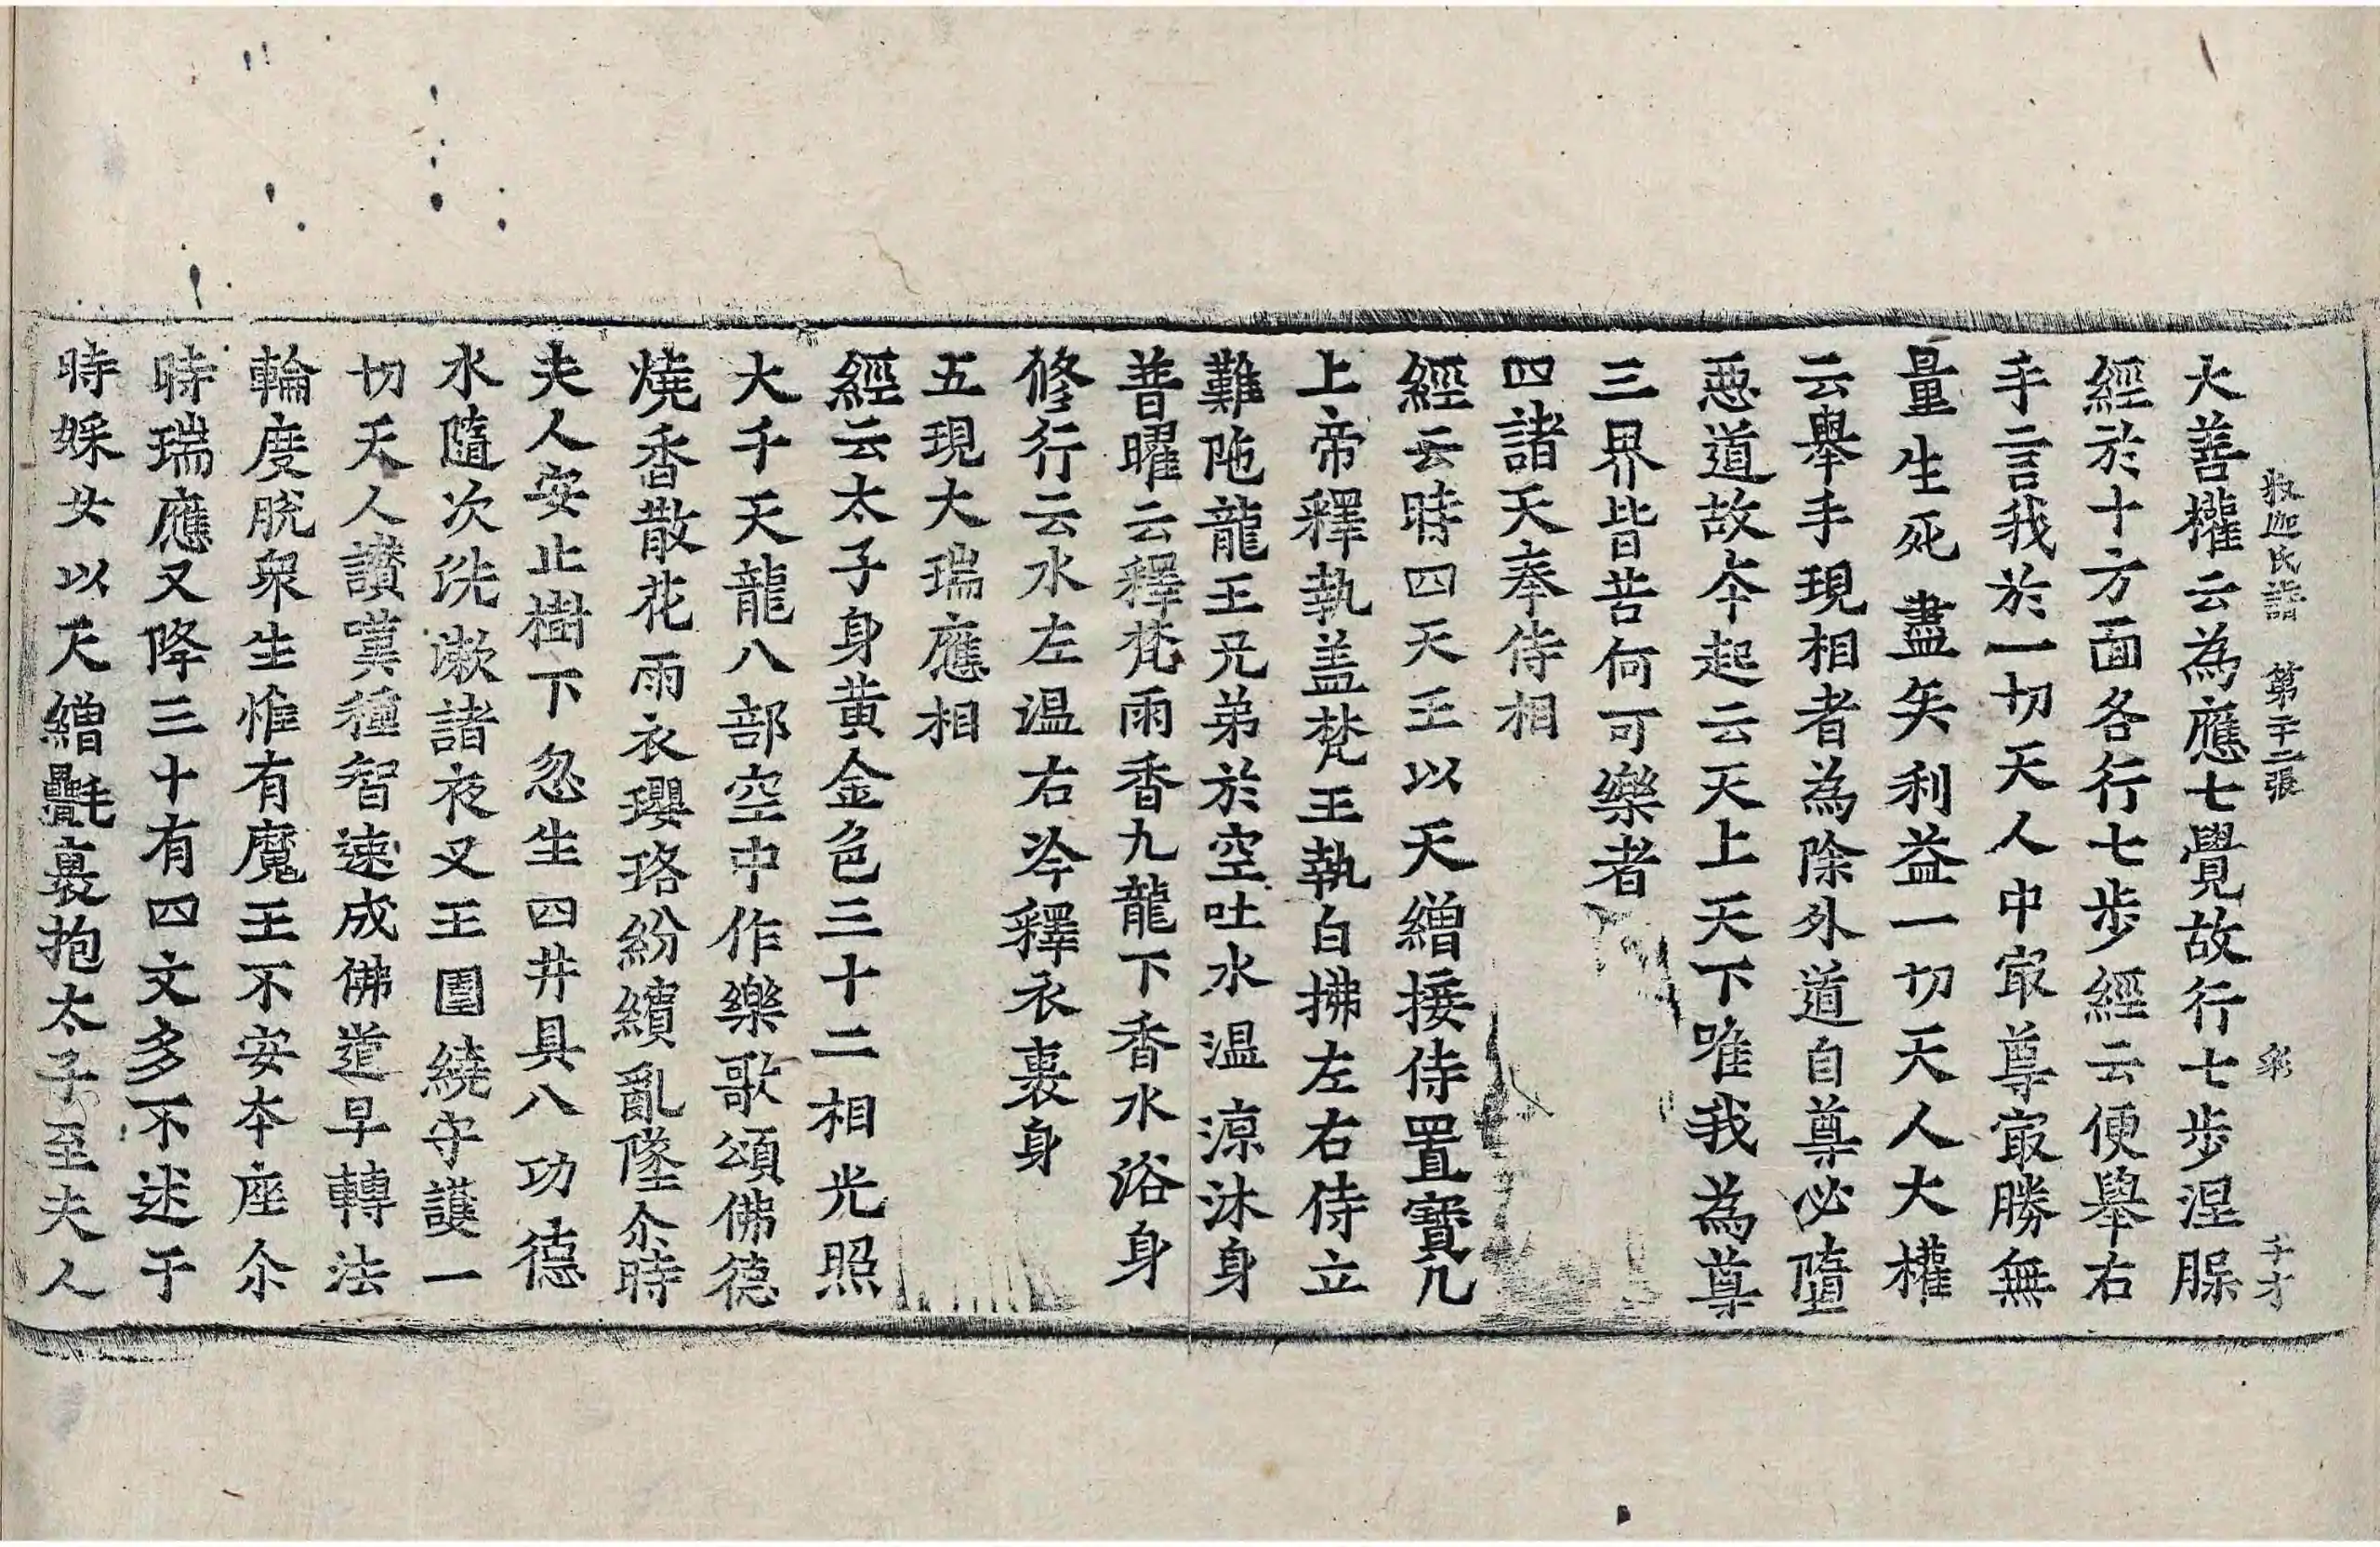 釋迦氏譜 第二十二張 彩 千才
大善權云為應七覺故行七步涅脲
經於十方面各行七步經云便舉右
手言我於一切天人中㝡尊㝡勝無
量生死盡矣利益一切天人大權
云舉手現相者為除外道自尊必墮
惡道故今起云天上天下唯我為尊
三界皆苦何可樂者
四諸天奉侍相
經云時四天王以天繒接侍置寶几
上帝釋執盖梵王執白拂左右侍立
難陁龍王兄弟於空吐水温涼沐身
普曜云釋梵雨香九龍下香水浴身
修行云水左温右冷釋衣裹身
五現大瑞應相
經云太子身黄金色三十二相光照
大千天龍八部空中作樂歌頌佛德
燒香散花雨衣瓔珞紛繽亂墜尒時
夫人安止樹下忽生四井具八功德
水隨次洗漱諸夜叉王圍繞守護一
切天人讃嘆種智速成佛道早轉法
輪度脱衆生惟有魔王不安本座尒
時瑞應又降三十有四文多不述于
時婇女以天繒㲲裹抱太子至夫人